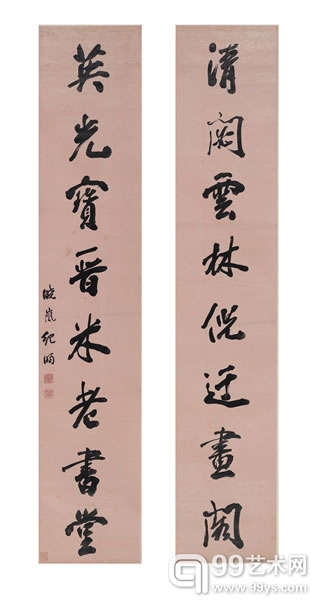 清閟雲林倪迂畫閣
英光寶晉米老書堂
曉嵐紀昀
99艺术网
www.99ys.com